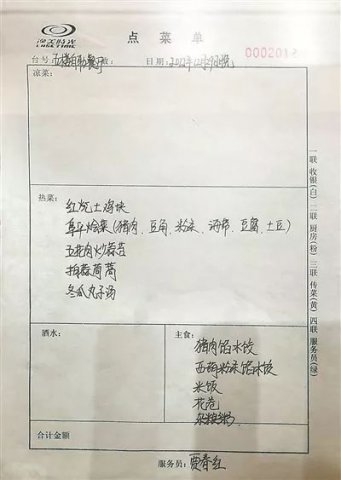 LAKE TIME
点菜单
0002012
台号: 日期:
凉菜:
热菜:
红烧土鸡块
阜平烩菜(猪肉、豆角、粉条、海带、豆腐、土豆)
五花肉炒蒜苔
拍蒜茼蒿
冬瓜丸子汤
酒水:
主食:
猪肉馅水饺
西葫粉条馅水饺
米饭
花卷
杂粮粥
合计金额
服务员: 贾春红
一联 收银(白) 二联 厨房(粉) 三联 传菜(黄) 四联 服务员(绿)